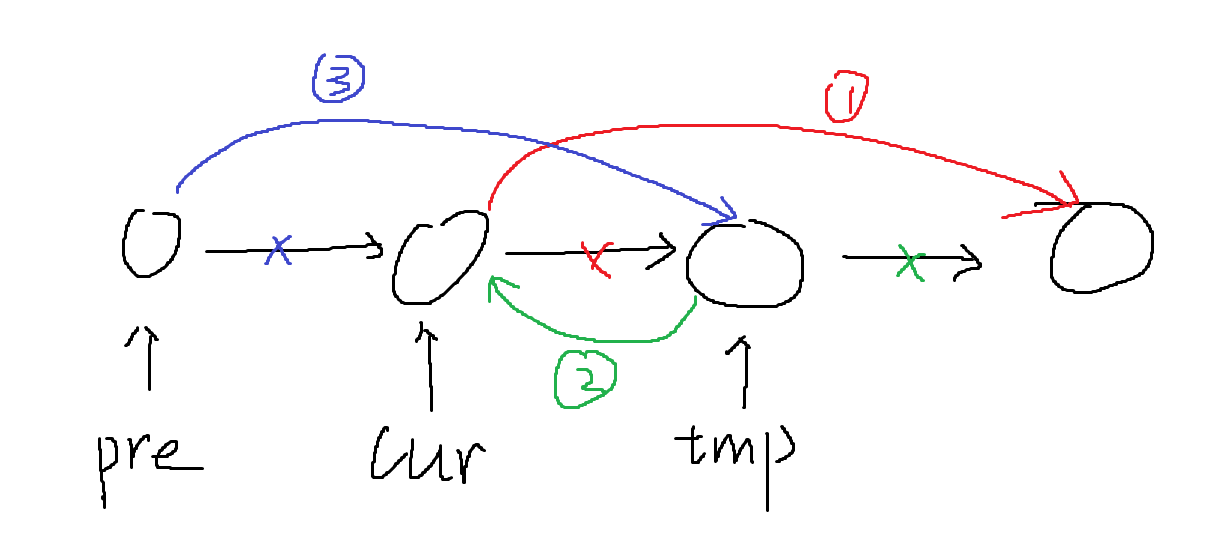 ③ ①
②
pre cur tmp